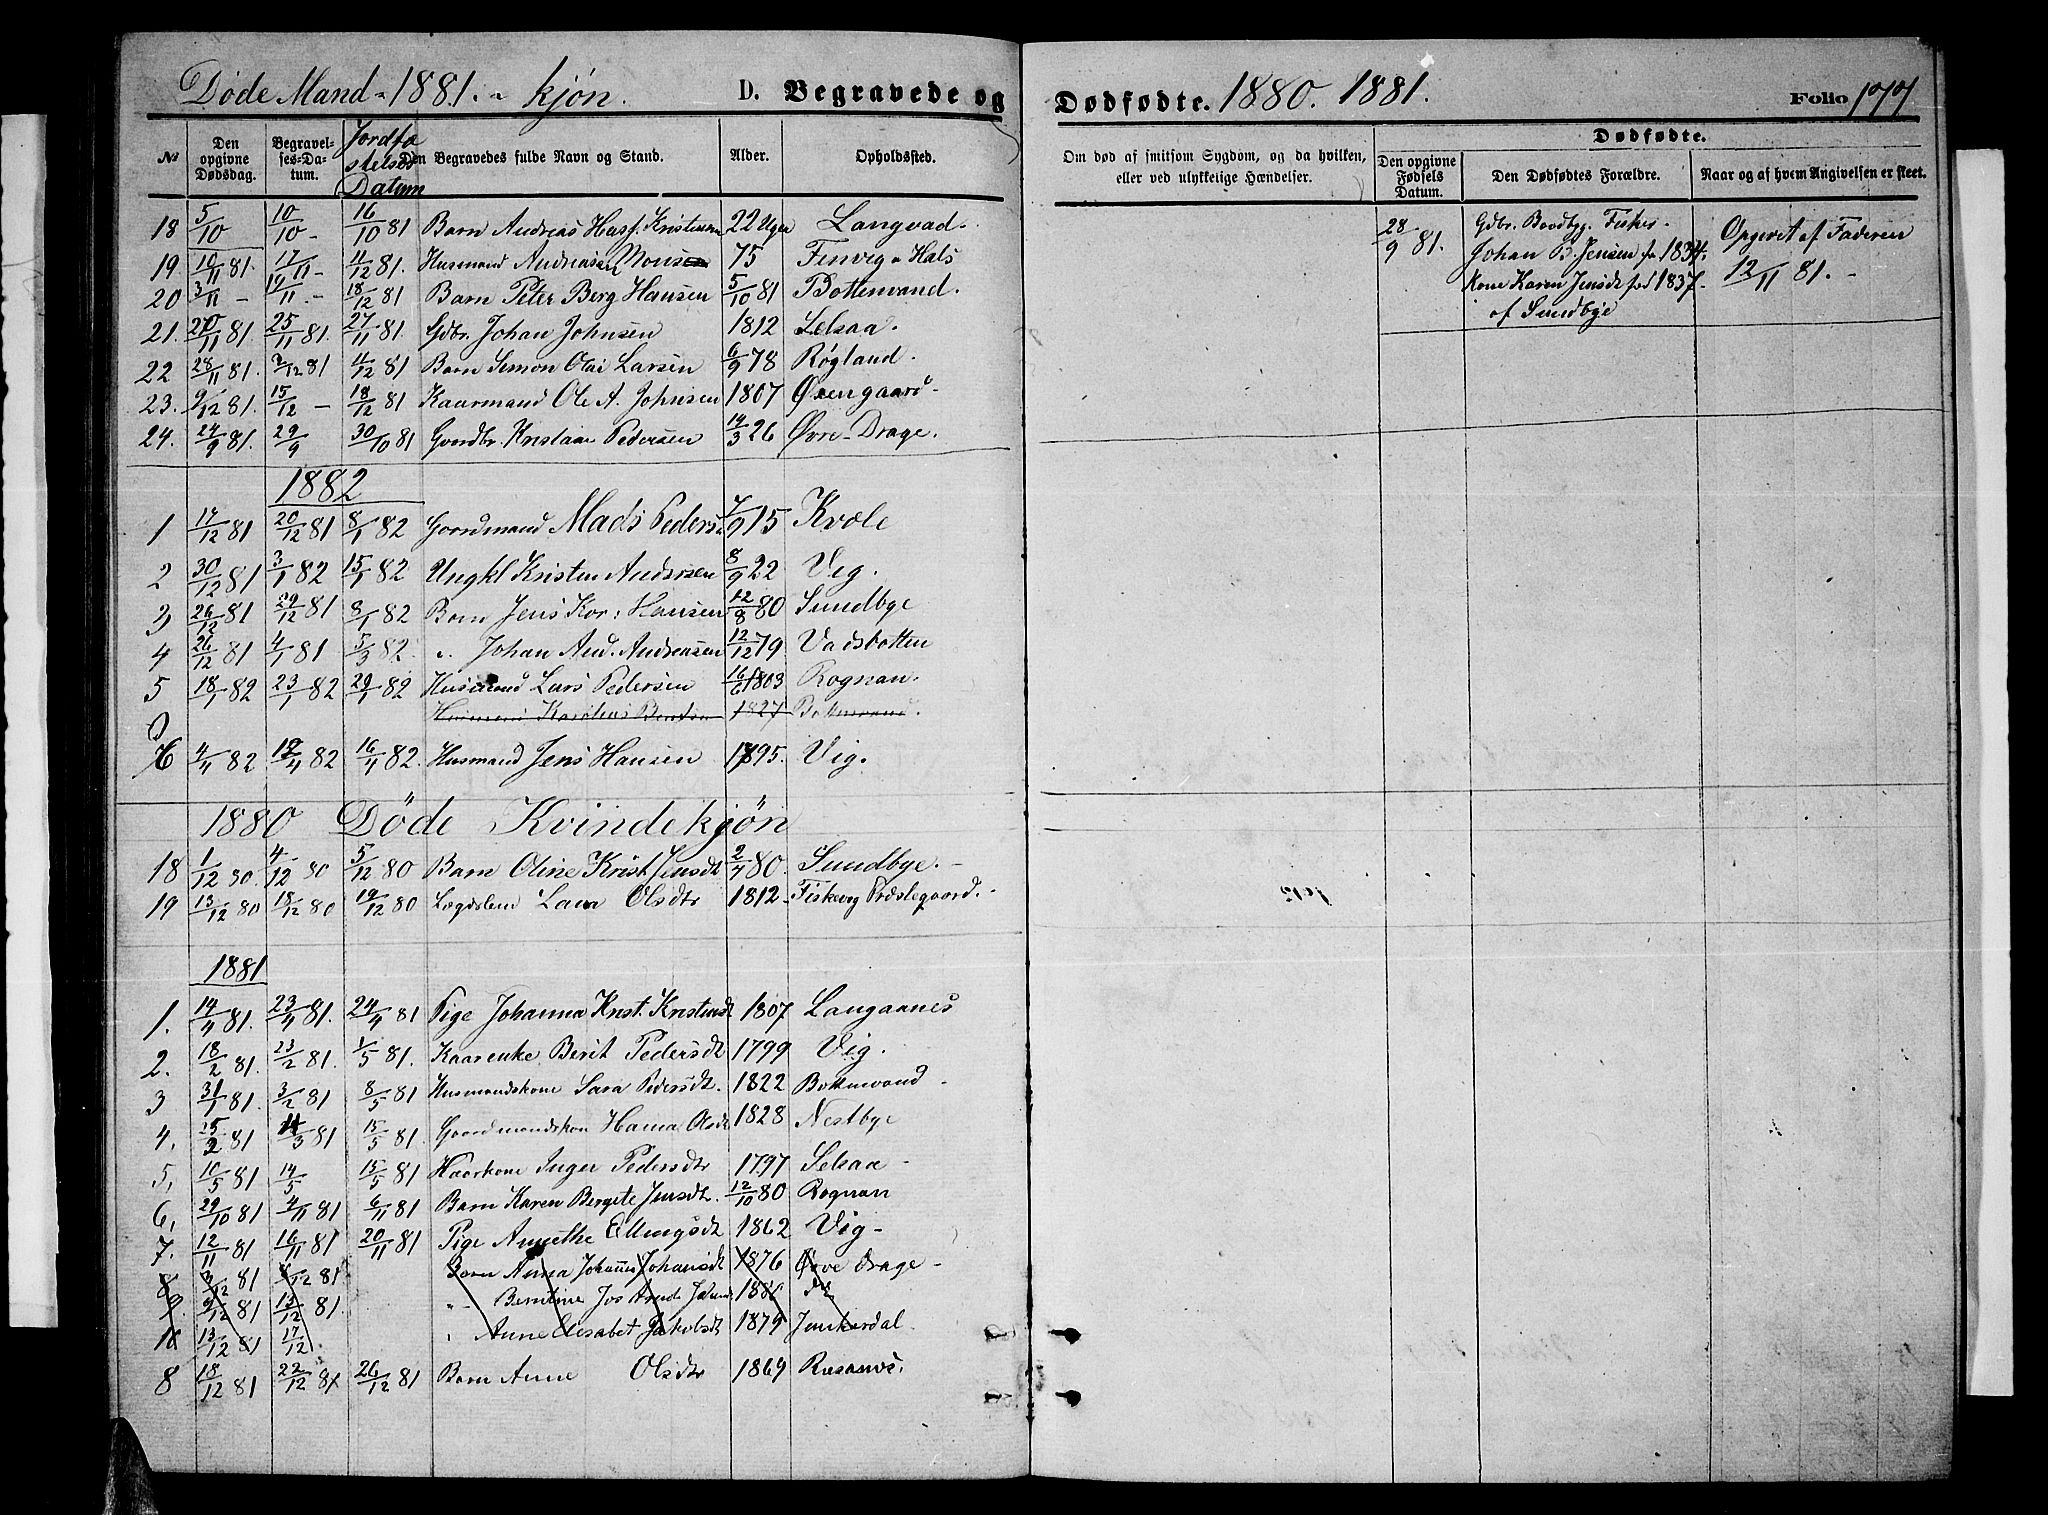 Døde Mand - 1881. - kjøn. D. Begravede og Dødfødte. 1880. 1881. Folio 177
№ Den opgivne Dødsdag. Begravelses-Datum. Jordfæstelses Datum Den Begravedes fulde Navn og Stand. Alder. Opholdssted. Om død af smitsom Sygdom, og da hvilken, eller ved ulykkelige Hændelser. Dødfødte. Den opgivne Fødsels Datum. Den Dødfødtes Forældre. Naar og af hvem Angivelsen er skeet.
18 5/10 10/10 - 16/10 81 Barn Andreas Kristensen 22 Uger Langvad.
19 10/11 81. 17/11 - 4/12 81. Husmand Andreas Monsen 75 Finvig Hals
20 3/11 - 12/11 - 18/12 81 Barn Peter Berg Hansen 5/10 81 Bottenvand.
21. 20/11 81 25/11 81. 27/11 81. Gdbr. Johan Johnsen 1812 Selsaa.
22 28/11 81. 2/12 81 4/12 81 Barn Simon Olai Larsen 6/9 78 Røgland.
23. 9/12 81. 15/12 - 18/12 81 Kaarmand Ole A. Johnsen 1807 Øxengaard -
24. 24/9 81. 29/9 30/10 81 Gaardbr. Kristian Pedersen 14/3 26 Øvre Drage.
28/9 81. Gdbr. Boedbyg. Fisker
Johan B. Jensen fø 1834.
Kone Karen Jensdt fød 1837.
af Sundbye
Opgivet af Faderen
12/11 81. -
1882
1 14/12 81 20/12 81 8/1 82 Gaardmand Mads Pedersen 7/9 15 Kvæle
2 30/12 81 3/1 82 15/1 82 Ungkl Kristen Andersen 8/9 22 Vig.
3 26/12 81 29/12 81 8/1 82 Barn Jens Kor: Hansen 12/8 80 Sundbye
4 26/12 81 4/1 81 5/3 82 " Johan And. Andreasen 12/12 79 Vadsbotten
5 18/1 82 23/1 82 29/1 82 Husmand Lars Pedersen 16/6 1803 Rognan.
1827 Bottenvand.
6 4/4 82 12/4 82 16/4 82. Husmand Jens Hansen 1795. Vig.
1880 Döde Kvindekjön
18 1/12 80 4/12 80 5/12 80 Barn Oline Krist Jensdt 2/4 80. Sundbye. -
19 13/12 80 18/12 80 19/12 80 Lægdslem Lava Olsdtr 1812 - Fiskevg Præstegaard. -
1881
1. 14/4 81. 23/4 81. 24/4 81 Pige Johanna Krist. Kristensdt 1807 Langaanes
2. 18/2 81. 23/2 81. 1/5 81. Kaarenke Berit Pedersdt 1799 Vig.
3 31/1 81. 3/2 81 8/5 81 Husmandskone Sara Pedersdt. 1822 Bottenvand -
4. 25/2 81 4/3 81 15/5 81. Gaardmandskon Hanna Olsdt 1828 Nestbye
5, 10/5 81 14/5 15/5 81 Kaarkone Inger Pedersdtr 1797 Selsaa -
6, 29/10 81 4/11 81 6/11 81 Barn Karen Bergete Jensdt. 12/10 80 Rognan
7. 12/11 81 16/11 81 20/11 81 Pige Annethe Ellingsdt 1862 Vig -
8 3/12 81 8/12 81 Barn Anna Johanne Johansdt 1876 Øvre Drage -
9. 9/12 81 13/12 81. " Berntine
10 13/12 81 17/12. " Anne Elisabet Jakobsdt 1879 Junkerdal.
8 18/12 81 22/12 81 26/12 81 Barn Anne Olsdtr 1869 Rusaanes.